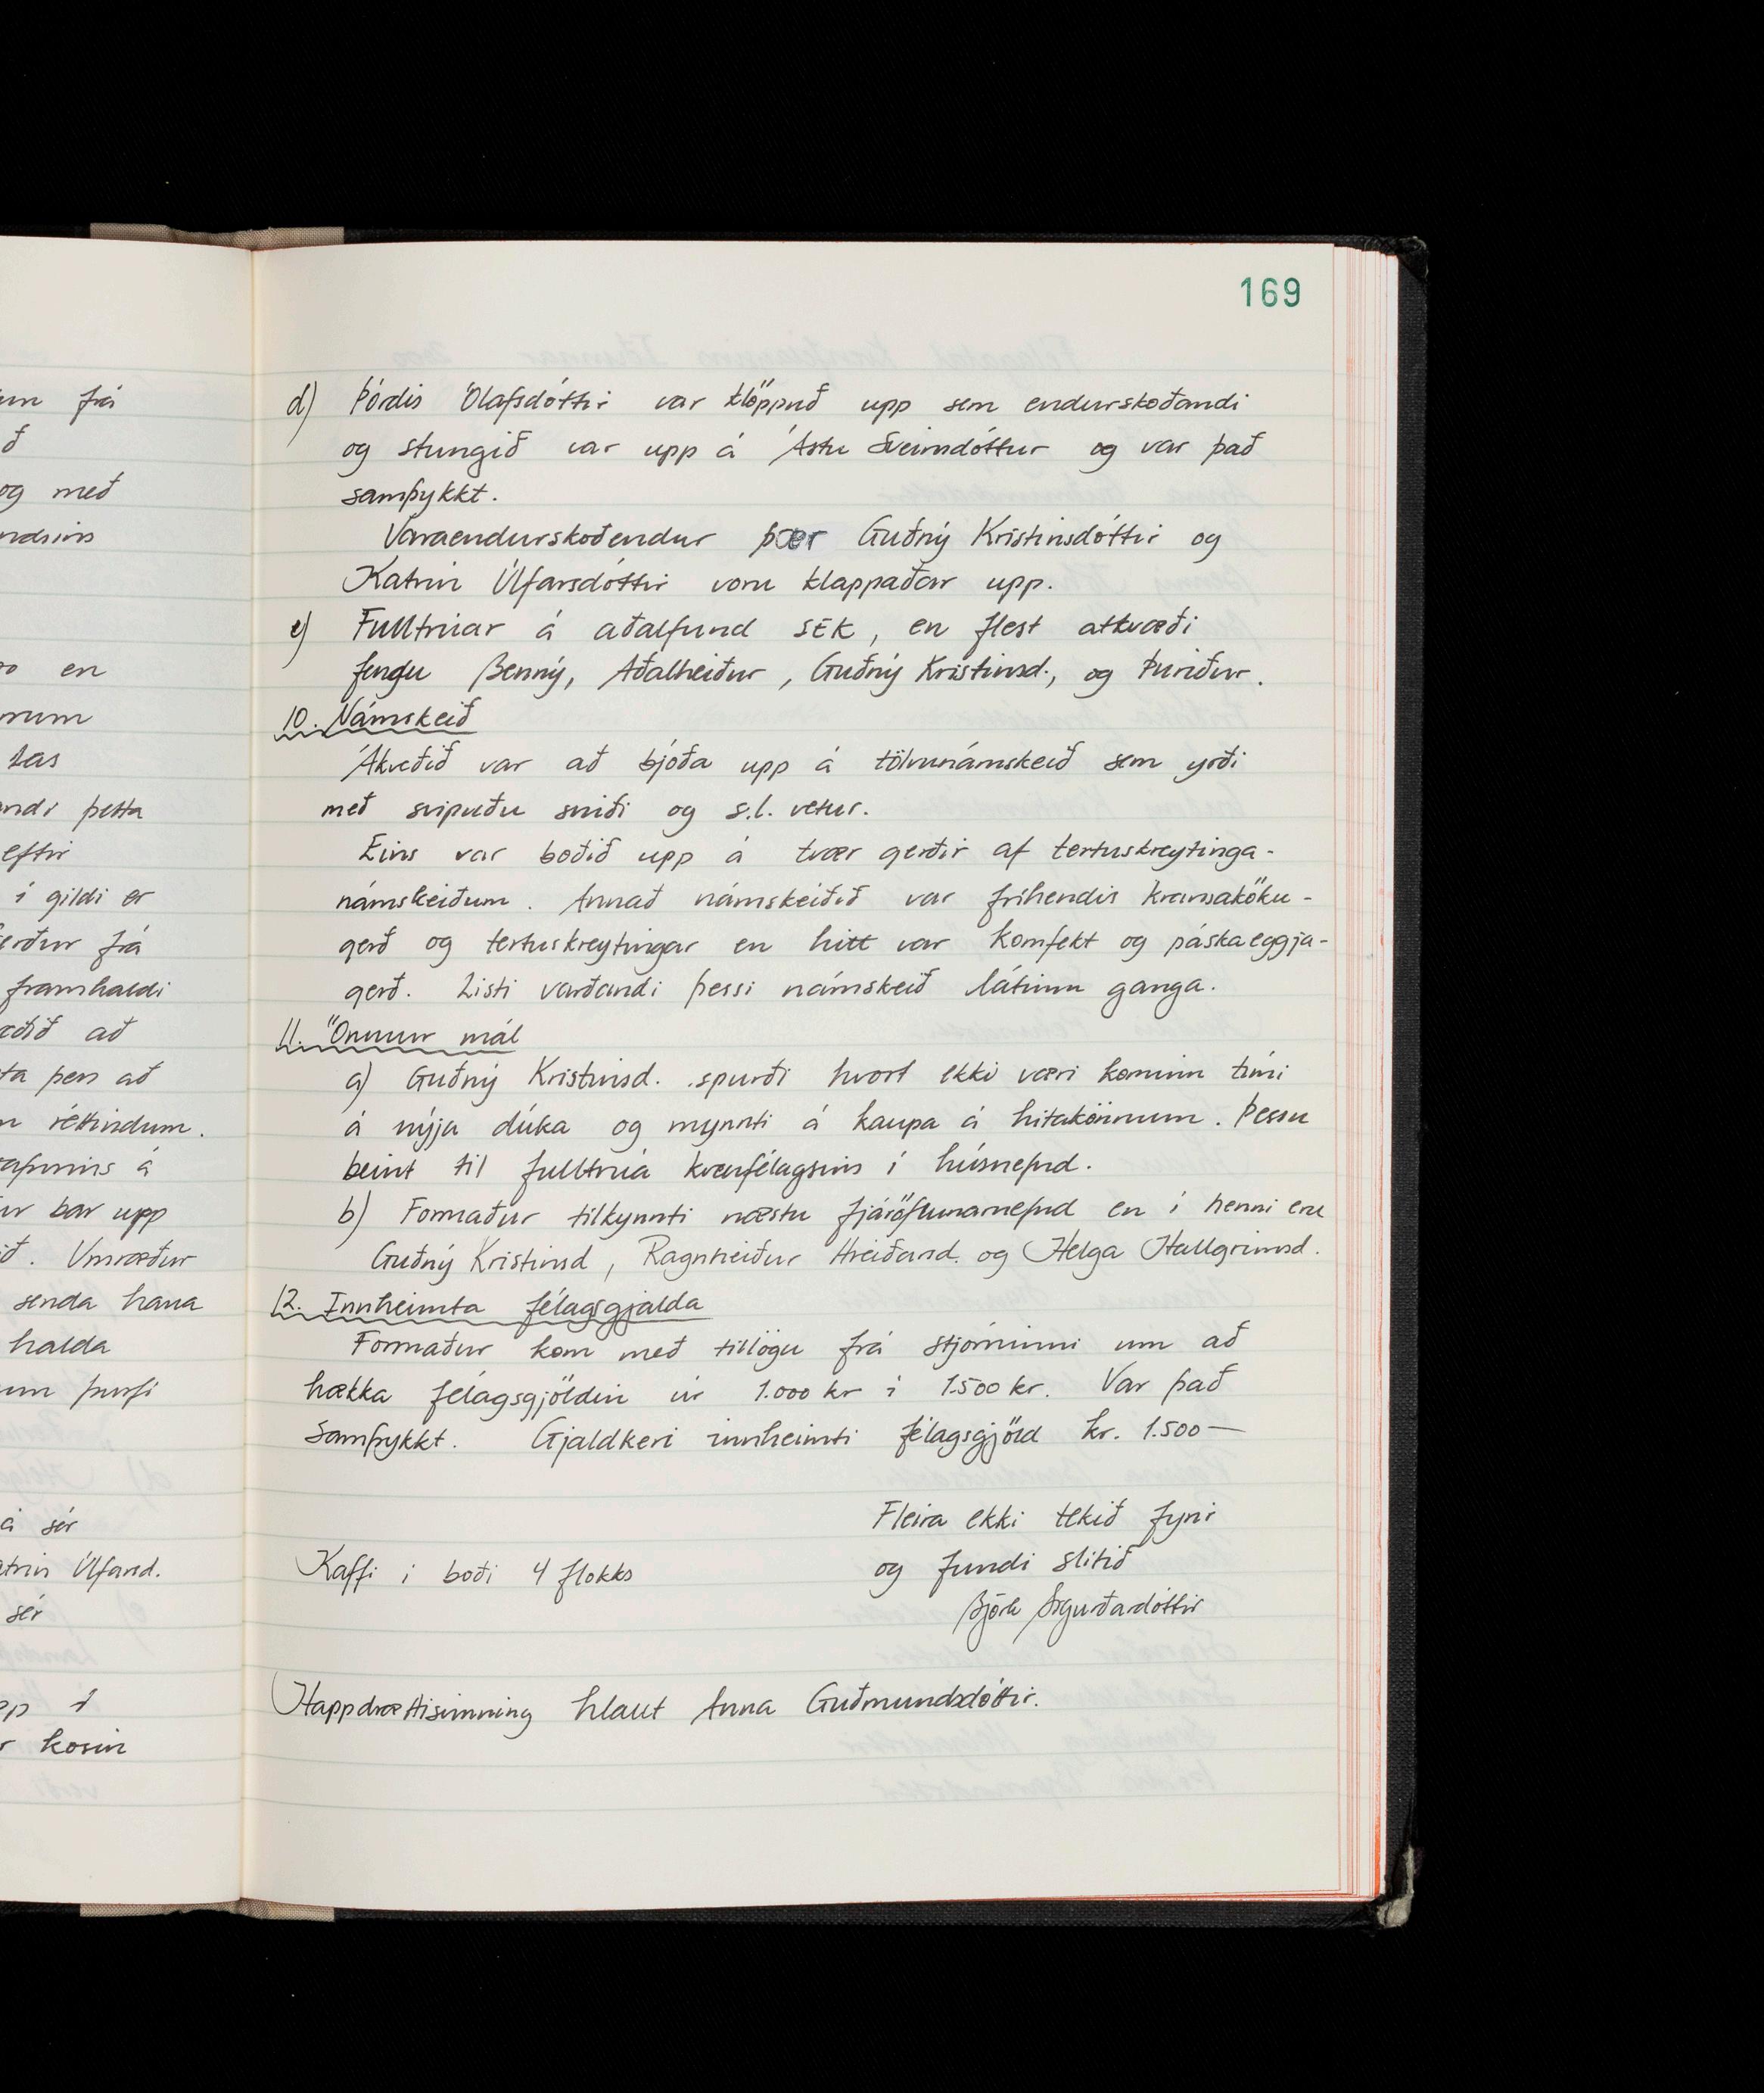 169
um frá
ð
og með
ndsins
en
tas
andi þetta
eftir
í gildi er
erður frá
framhaldi
að
ta þess að
réttindum.
á
ur bar upp
ið. Umræður
senda hana
halda
um þurfi
á sér
atrín Úlfarsd.
sér
pp í
r kosin
d) Þórdís Ólafsdóttir var klöppuð upp sem endurskoðandi
og stungið var upp á Ástu Sveinsdóttur og var það
samþykkt.
Varaendurskoðendur þær Guðný Kristinsdóttir og
Katrín Úlfarsdóttir voru klappaðar upp.
e) Fulltrúar á aðalfund SEK, en flest atkvæði
fengu Benný, Aðalheiður, Guðný Kristinsd., og Þuríður.
10. Námskeið
Ákveðið var að bjóða upp á tölvunámskeið sem yrði
með svipuðu sniði og s.l. vetur.
Eins var boðið upp á tvær gerðir af tertuskreytinga-
námskeiðum. Annað námskeiðið var fríhendis kransaköku-
gerð og tertuskreytingar en hitt var konfekt og páskaeggja-
gerð. Listi varðandi þessi námskeið látinn ganga.
11. Önnur mál
a) Guðný Kristinsd. spurði hvort ekki væri kominn tími
á nýja dúka og mynnti á kaupa á hitakönnum. Þessu
beint til fulltrúa kvenfélagsins í húsnefnd.
b) Formaður tilkynnti næstu fjáröflunarnefnd en í henni eru
Guðný Kristinsd, Ragnheiður Hreiðarsd. og Helga Hallgrímsd.
12. Innheimta félagsgjalda
Formaður kom með tillögu frá stjórninni um að
hækka félagsgjöldin úr 1.000 kr í 1.500 kr. Var það
samþykkt. Gjaldkeri innheimti félagsgjöld kr. 1.500—
Fleira ekki tekið fyrir
Kaffi í boði 4 flokks
og fundi slitið
Björk Sigurðardóttir
Happdrættisvinning hlaut Anna Guðmundsdóttir.